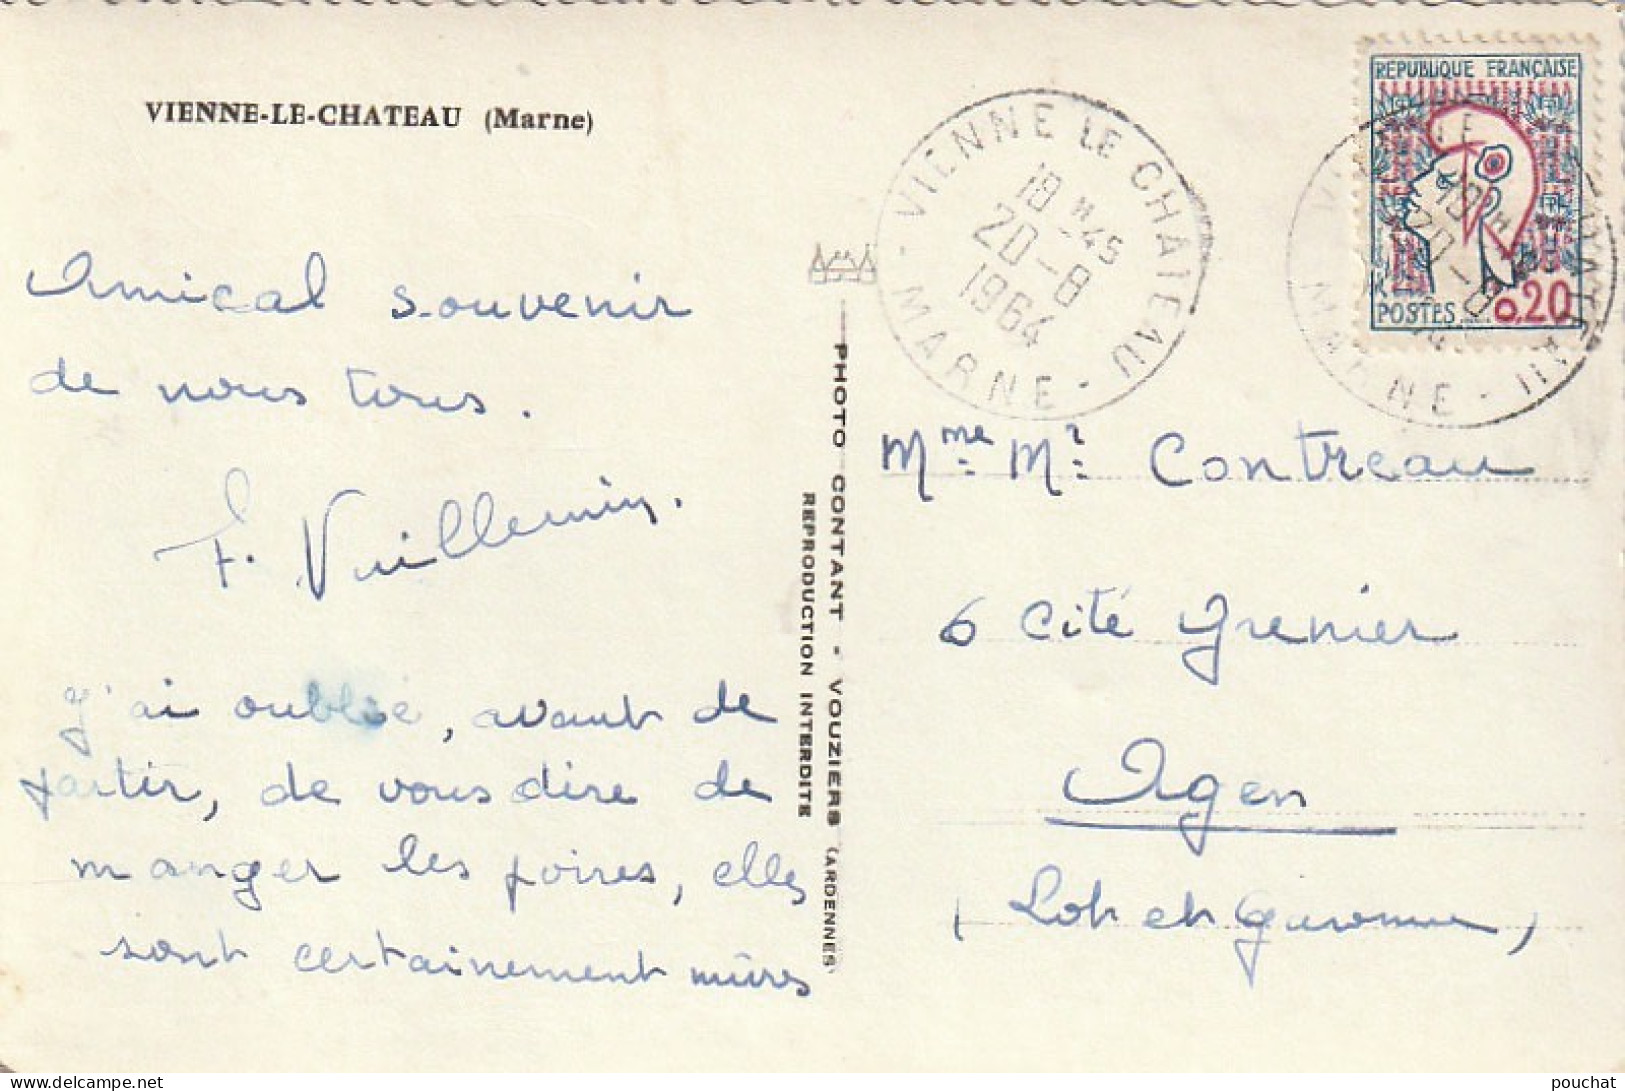 VIENNE-LE-CHATEAU (Marne)
Amical souvenir
de nous tous.
F. Vuillemin.
J'ai oublié, avant de
partir, de vous dire de
manger les poires, elles
sont certainement mûres
PHOTO CONTANT - VOUZIERS (ARDENNES)
REPRODUCTION INTERDITE
VIENNE LE CHATEAU
18 H 45
20-8
1964
- MARNE -
REPUBLIQUE FRANÇAISE
POSTES 0,20
Mme Mr Contreau
6 Cité Grenier
Agen
(Lot et Garonne)
delcampe.net
pouchat